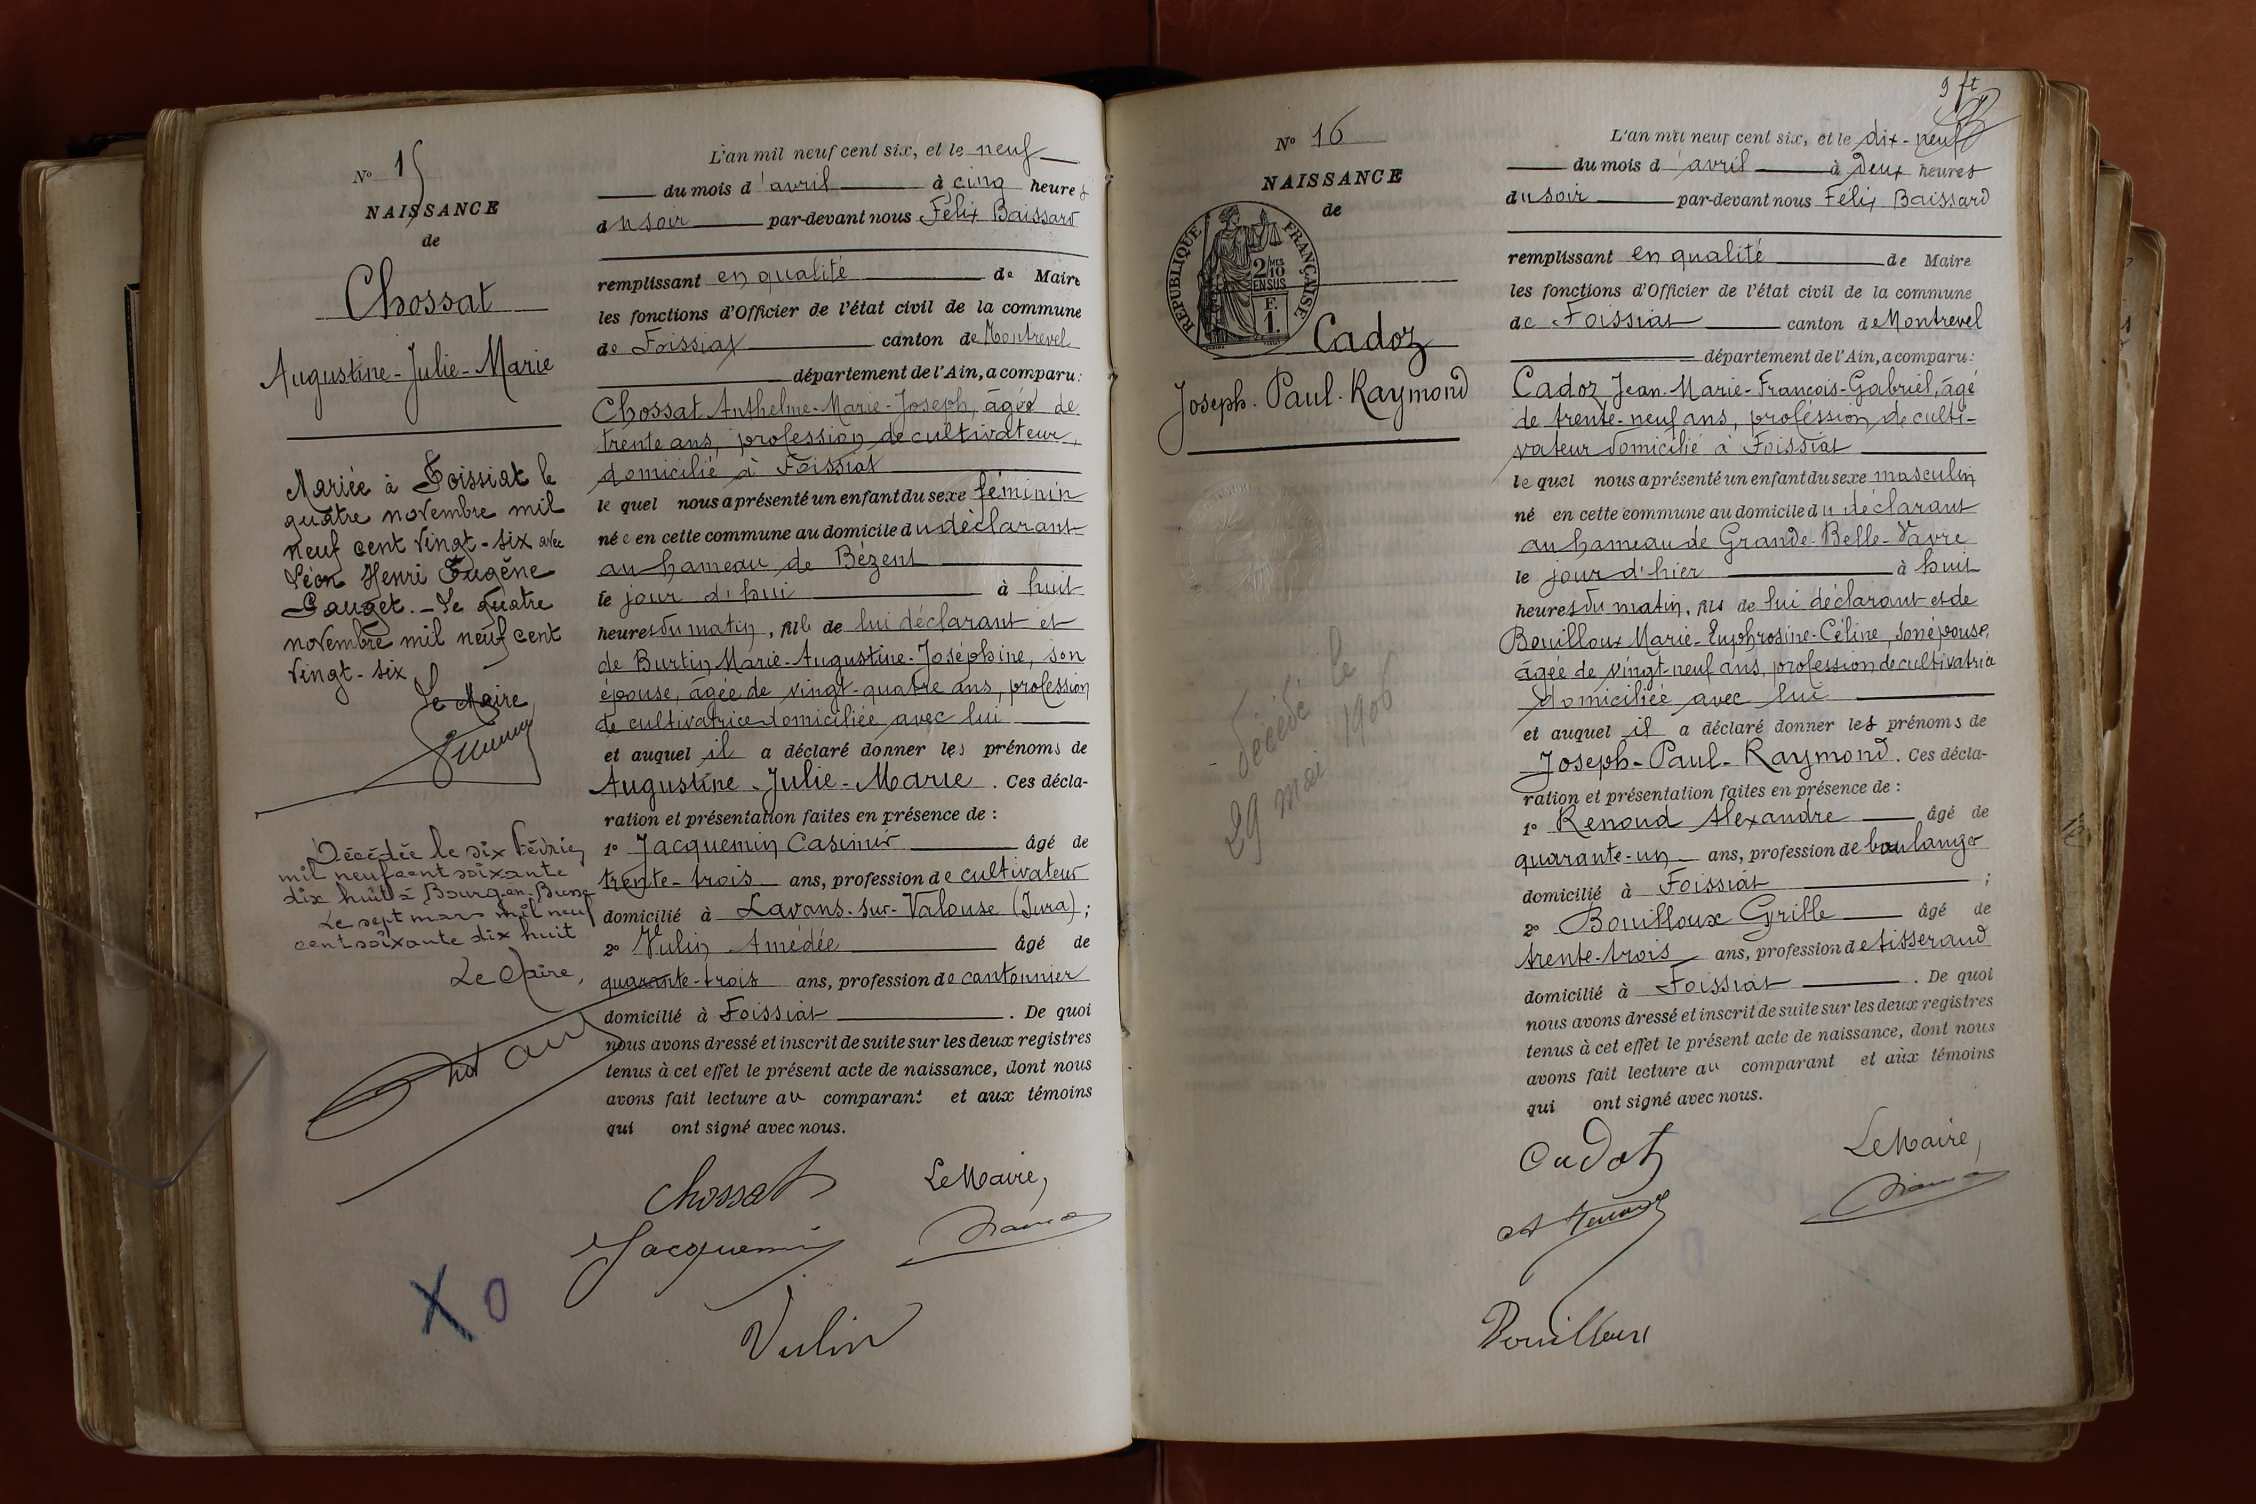 Nº 15
NAISSANCE
de
Chossat
Augustine-Julie-Marie
Mariée à Foissiat le
quatre novembre mil
neuf cent vingt-six avec
Léon Henri Eugène
Gauget. - Le quatre
novembre mil neuf cent
vingt-six
Le Maire
Décédée le six Février
mil neuf cent soixante
dix huit à Bourg-en-Bresse
Le sept mars mil neuf
cent soixante dix huit
Le Maire,
X O
L'an mil neuf cent six, et le neuf
du mois d'avril à cinq heures
du soir par-devant nous Félix Baissard
remplissant en qualité de Maire
les fonctions d'Officier de l'état civil de la commune
de Foissiat canton de Montrevel
département de l'Ain, a comparu:
Chossat Anthelme-Marie-Joseph, âgé de
trente ans, profession de cultivateur,
domicilié à Foissiat
le quel nous a présenté un enfant du sexe féminin
née en cette commune au domicile du déclarant
au hameau de Bézent
le jour d'hui à huit
heures du matin, fille de lui déclarant et
de Burtin Marie-Augustine-Joséphine, son
épouse, âgée de vingt-quatre ans, profession
de cultivatrice domiciliée avec lui
et auquel il a déclaré donner les prénoms de
Augustine-Julie-Marie. Ces décla-
ration et présentation faites en présence de :
1º Jacquemin Casimir âgé de
trente-trois ans, profession de cultivateur
domicilié à Lavans-sur-Valouse (Jura);
2º Vulin Amédée âgé de
quarante-trois ans, profession de cantonnier
domicilié à Foissiat. De quoi
nous avons dressé et inscrit de suite sur les deux registres
tenus à cet effet le présent acte de naissance, dont nous
avons fait lecture au comparant et aux témoins
qui ont signé avec nous.
Chossat
Le Maire,
Jacquemin
Vulin
9 ft
Nº 16
NAISSANCE
de
RÉPUBLIQUE FRANÇAISE
2/10
EN SUS
F.
1.
Cadoz
Joseph-Paul-Raymond
Décédé le
29 mai 1906
L'an mil neuf cent six, et le dix-neuf
du mois d'avril à deux heures
du soir par-devant nous Félix Baissard
remplissant en qualité de Maire
les fonctions d'Officier de l'état civil de la commune
de Foissiat canton de Montrevel
département de l'Ain, a comparu:
Cadoz Jean-Marie-François-Gabriel, âgé
de trente-neuf ans, profession de culti-
vateur domicilié à Foissiat
le quel nous a présenté un enfant du sexe masculin
né en cette commune au domicile du déclarant
au hameau de Grande-Belle-Vavre
le jour d'hier à huit
heures du matin, fils de lui déclarant et de
Bouilloux Marie-Euphrosine-Céline, son épouse,
âgée de vingt-neuf ans, profession de cultivatrice
domiciliée avec lui
et auquel il a déclaré donner les prénoms de
Joseph-Paul-Raymond. Ces décla-
ration et présentation faites en présence de :
1º Renoud Alexandre âgé de
quarante-un ans, profession de boulanger
domicilié à Foissiat ;
2º Bouilloux Cyrille âgé de
trente-trois ans, profession de tisserand
domicilié à Foissiat. De quoi
nous avons dressé et inscrit de suite sur les deux registres
tenus à cet effet le présent acte de naissance, dont nous
avons fait lecture au comparant et aux témoins
qui ont signé avec nous.
Cadot
Le Maire,
A Renoud
Bouilloux